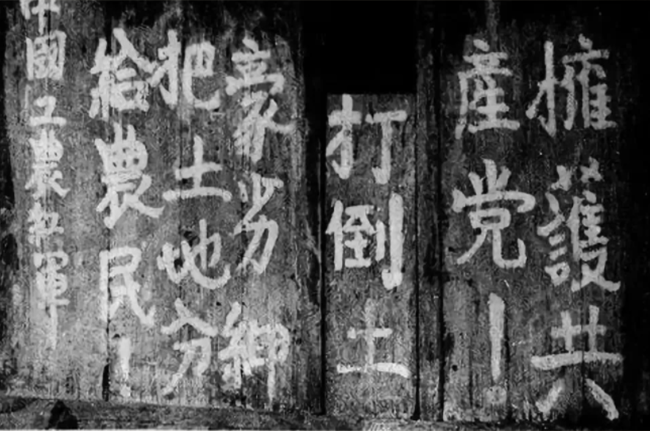 擁護共
産党！
打倒土
豪劣紳
把土地分
給農民！
中國工農红軍